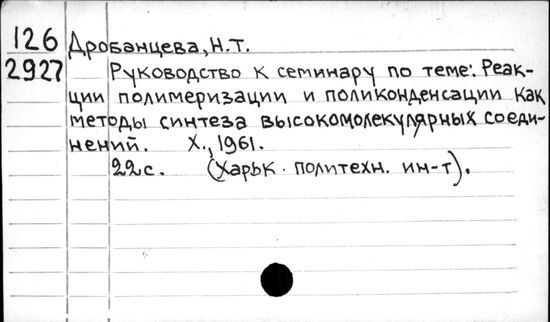 126 Дробанцева, Н.Т.
2927 Руководство к семинару по теме: Реак-
ции полимеризации и поликонденсации как
методы синтеза высокомолекулярных соеди-
нений. Х., 1961.
22с. (Харьк. политехн. ин-т).